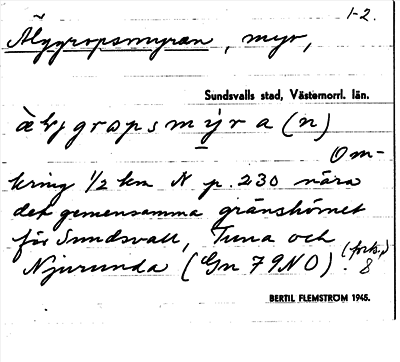 1-2.
Älggropsmyran, myr,
Sundsvalls stad, Västernorrl. län.
àljgropsmýra(n)
Om-
kring 1/2 km N p. 230 nära
det gemensamma gränshörnet
för Sundsvall, Tuna och
Njurunda (Gn 79NO). (forts.)
8
BERTIL FLEMSTRÖM 1945.